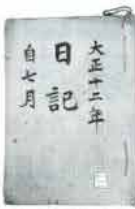 大正十二年
日記
自七月